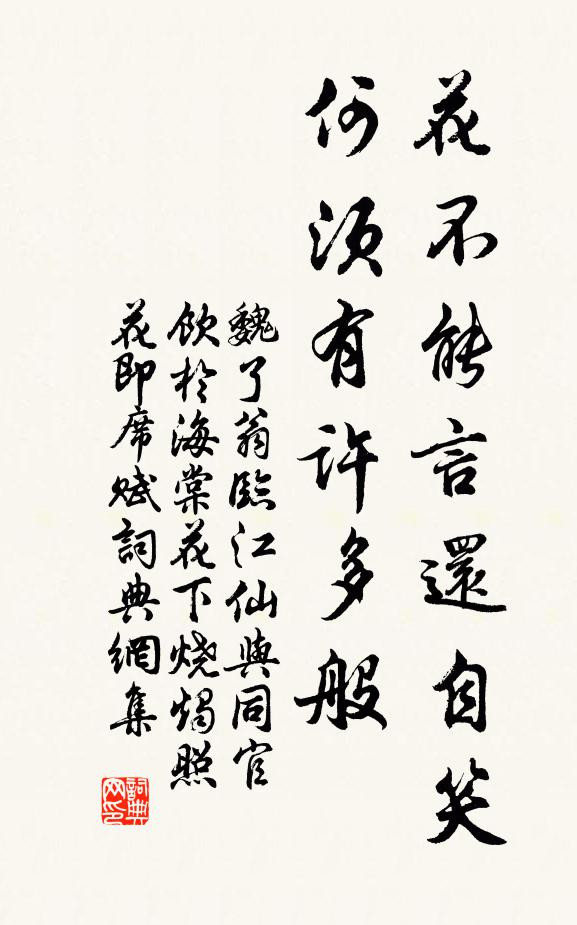 花不能言還自笑
何須有許多般
魏了翁臨江仙與同官
飲於海棠花下燒燭照
花即席賦詞典網集
詞典
网印